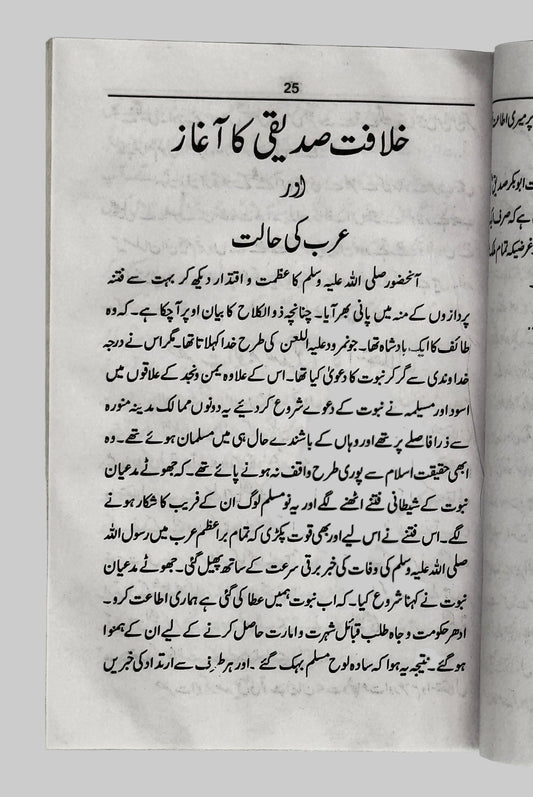 25
خلافت صدیقی کا آغاز
اور
عرب کی حالت
آنحضور صلی اللہ علیہ وسلم کا عظمت و اقتدار دیکھ کر بہت سے فتنہ
پردازوں کے منہ میں پانی بھر آیا۔ چنانچہ ذوالکلاح کا بیان اوپر آ چکا ہے۔ کہ وہ
طائف کا ایک بادشاہ تھا۔ جو نمرود علیہ اللعن کی طرح خدا کہلاتا تھا۔ مگر اس نے درجہ
خداوندی سے گر کر نبوت کا دعویٰ کیا تھا۔ اس کے علاوہ یمن و نجد کے علاقوں میں
اسود اور مسیلمہ نے نبوت کے دعوے شروع کر دیئے یہ دونوں ممالک مدینہ منورہ
سے ذرا فاصلے پر تھے اور وہاں کے باشندے حال ہی میں مسلمان ہوئے تھے۔ وہ
ابھی حقیقت اسلام سے پوری طرح واقف نہ ہونے پائے تھے۔ کہ جھوٹے مدعیان
نبوت کے شیطانی فتنے اٹھنے لگے اور یہ نو مسلم لوگ ان کے فریب کا شکار ہونے
لگے۔ اس فتنے نے اس لیے اور بھی قوت پکڑی کہ تمام براعظم عرب میں رسول اللہ
صلی اللہ علیہ وسلم کی وفات کی خبر برقی سرعت کے ساتھ پھیل گئی۔ جھوٹے مدعیان
نبوت نے کہنا شروع کیا۔ کہ اب نبوت ہمیں عطا کی گئی ہے ہماری اطاعت کرو۔
ادھر حکومت و جاہ طلب قبائل شہرت و امارت حاصل کرنے کے لیے ان کے ہمنوا
ہو گئے۔ نتیجہ یہ ہوا کہ سادہ لوح مسلم بہک گئے۔ اور ہر طرف سے ارتداد کی خبریں
پر میری اطاعت
ت ابوبکر صدیق
ہے کہ صرف ایک
غرضیکہ تمام ملک